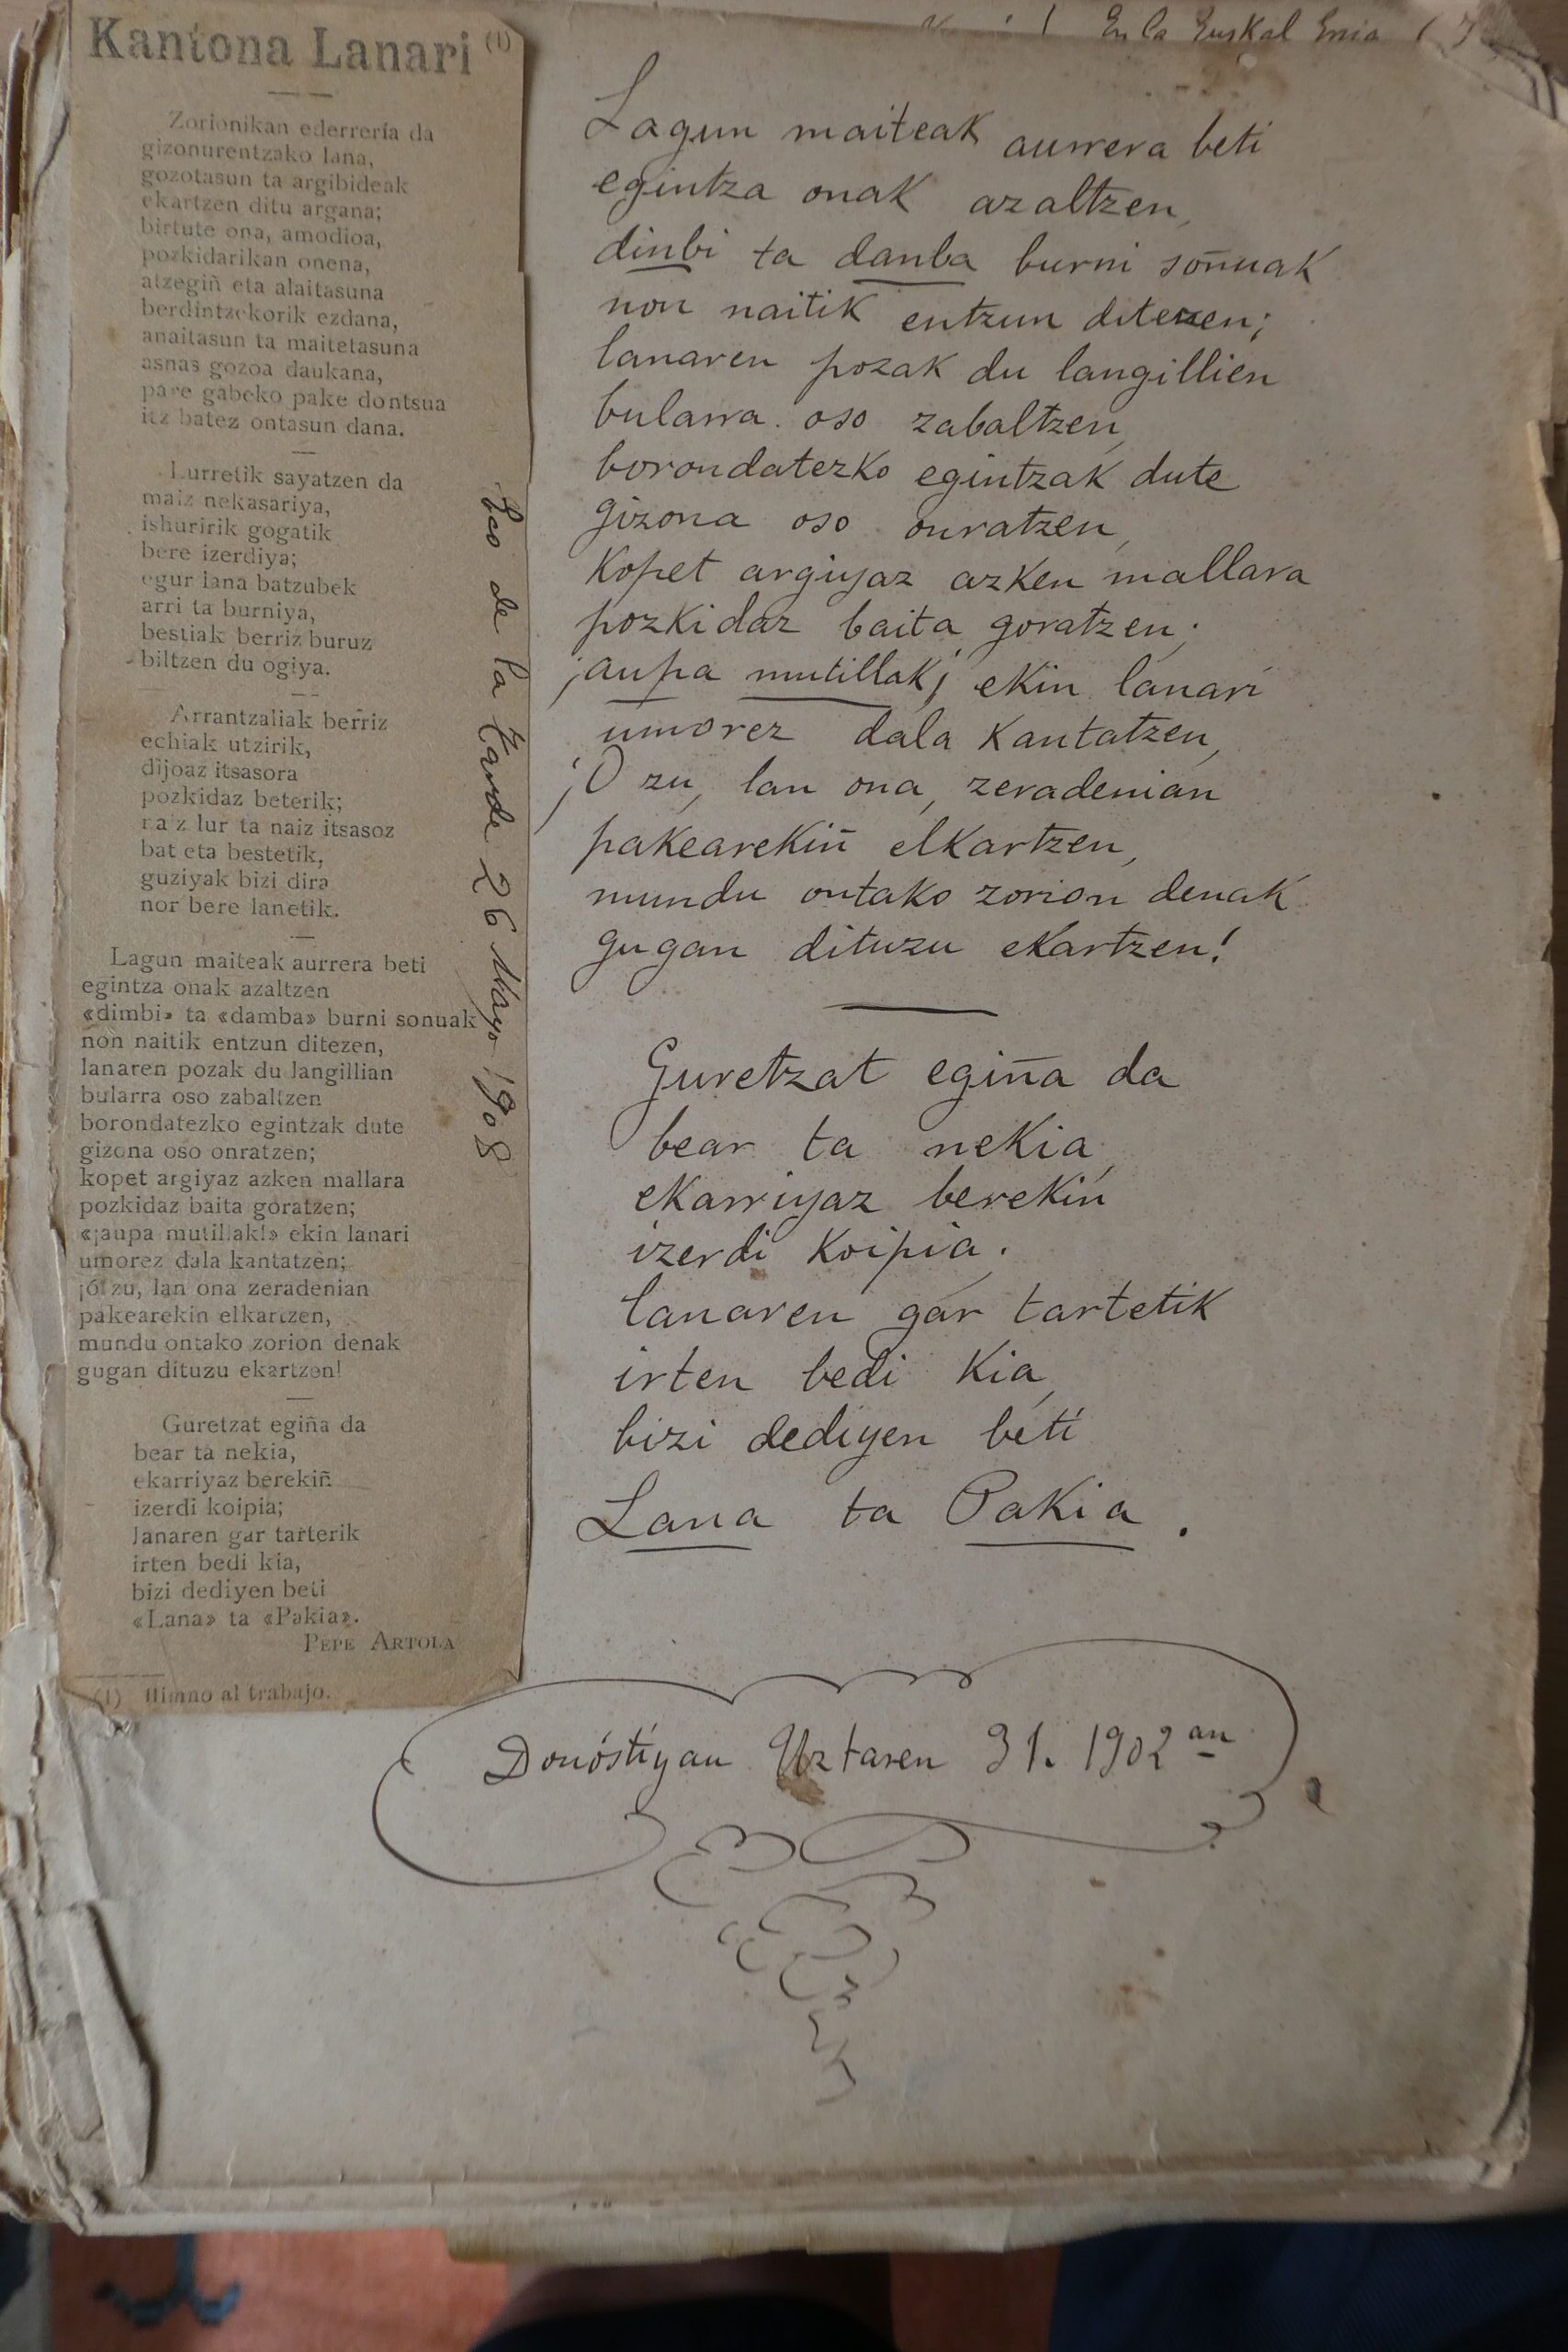 Kantona Lanari (1)
Zorionikan ederrería da
gizonurentzako lana,
gozotasun ta argibideak
ekartzen ditu argana;
birtute ona, amodioa,
pozkidarikan onena,
atzegiñ eta alaitasuna
berdintzekorik ezdana,
anaitasun ta maitetasuna
asnas gozoa daukana,
pare gabeko pake dontsua
itz batez ontasun dana.
Lurretik sayatzen da
maiz nekasariya,
ishuririk gogatik
bere izerdiya;
egur lana batzubek
arri ta burniya,
bestiak berriz buruz
biltzen du ogiya.
Arrantzaliak berriz
echiak utzirik,
dijoaz itsasora
pozkidaz beterik;
naiz lur ta naiz itsasoz
bat eta bestetik,
guziyak bizi dira
nor bere lanetik.
Lagun maiteak aurrera beti
egintza onak azaltzen
«dimbi» ta «damba» burni sonuak
non naitik entzun ditezen,
lanaren pozak du langillian
bularra oso zabaltzen
borondatezko egintzak dute
gizona oso onratzen;
kopet argiyaz azken mallara
pozkidaz baita goratzen;
«¡aupa mutillak!» ekin lanari
umorez dala kantatzen;
¡ó! zu, lan ona zeradenian
pakearekin elkartzen,
mundu ontako zorion denak
gugan dituzu ekartzen!
Guretzat egiña da
bear ta nekia,
ekarriyaz berekiñ
izerdi koipia;
lanaren gar tarterik
irten bedi kia,
bizi dediyen beti
«Lana» ta «Pakia».
PEPE ARTOLA
(1) Himno al trabajo.
de la Tarde 26 Mayo 1908
En la Euskal Erria
Lagun maiteak aurrera beti
egintza onak azaltzen,
dinbi ta danba burni soñuak
non naitik entzun ditezen;
lanaren pozak du langillien
bularra oso zabaltzen,
borondatezko egintzak dute
gizona oso onratzen,
Kopet argiyaz azken mallara
pozkidaz baita goratzen;
¡aupa mutillak¡ ekin lanari
umorez dala kantatzen,
¡O zu, lan ona, zeradenian
pakearekiñ elkartzen,
mundu ontako zorion denak
gugan dituzu ekartzen!
Guretzat egiña da
bear ta nekia,
ekarriyaz berekiñ
izerdi koipia.
lanaren gar tartetik
irten bedi kia,
bizi dediyen beti
Lana ta Pakia.
Donóstiyan Uztaren 31. 1902 an